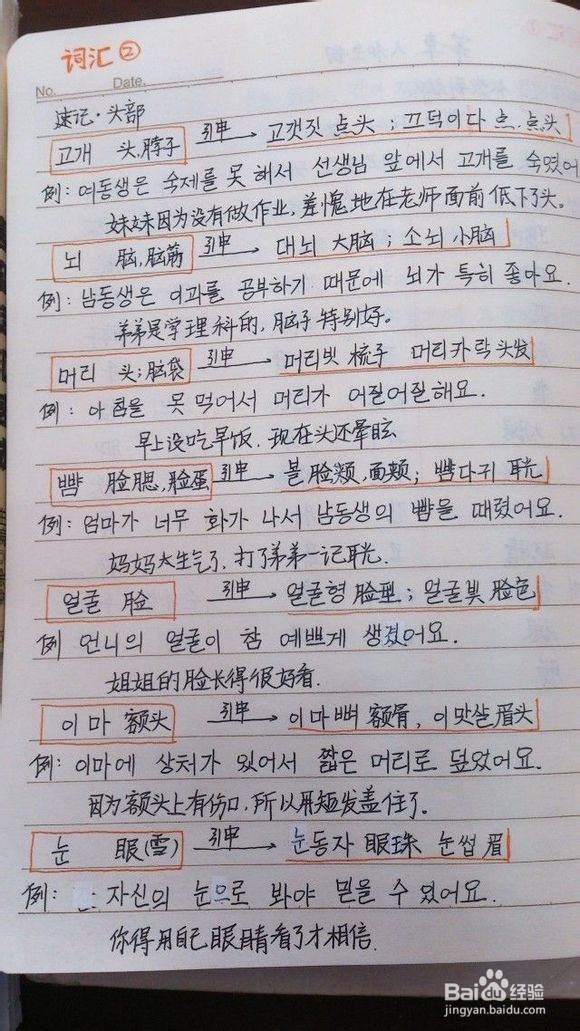 词汇②
No. Date.
速记·头部
고개 头,脖子 引申 → 고갯짓 点头；끄덕이다 点,点头
例：여동생은 숙제를 못 해서 선생님 앞에서 고개를 숙였어
妹妹因为没有做作业,羞愧地在老师面前低下了头。
뇌 脑,脑筋 引申 → 대뇌 大脑；소뇌 小脑
例：남동생은 이과를 공부하기 때문에 뇌가 특히 좋아요.
弟弟是学理科的,脑子特别好。
머리 头；脑袋 引申 → 머리빗 梳子 머리카락 头发
例：아침을 못 먹어서 머리가 어질어질해요.
早上没吃早饭,现在头还晕眩
뺨 脸腮,脸蛋 引申 → 볼 脸颊,面颊；뺨다귀 耳光
例：엄마가 너무 화가 나서 남동생의 뺨을 때렸어요.
妈妈太生气了,打了弟弟一记耳光.
얼굴 脸 引申 → 얼굴형 脸型；얼굴빛 脸色
例 언니의 얼굴이 참 예쁘게 생겼어요.
姐姐的脸长得很好看.
이마 额头 引申 → 이마뼈 额骨, 이맛살 眉头
例：이마에 상처가 있어서 짧은 머리로 덮었어요.
因为额头上有伤口,所以用短发盖住了。
눈 眼(雪) 引申 → 눈동자 眼珠 눈썹 眉
例：자신의 눈으로 봐야 믿을 수 있어요.
你得用自己眼睛看了才相信.
Baidu经验
jingyan.baidu.com